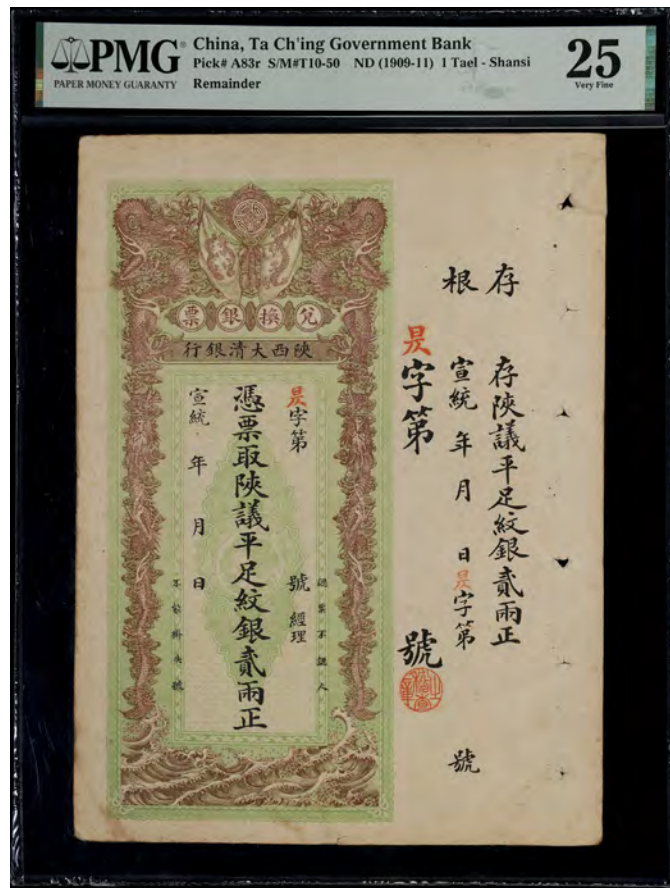 PMG
PAPER MONEY GUARANTY
China, Ta Ch'ing Government Bank
Pick# A83r S/M#T10-50 ND (1909-11) 1 Tael - Shansi
Remainder
25
Very Fine
存根
存陝議平足紋銀貳兩正
宣統 年 月 日昃字第 號
昃字第 號
兌換銀票
陝西大清銀行
認票不認人
昃字第 號 經理
憑票取陝議平足紋銀貳兩正
宣統 年 月 日
不能掛失號